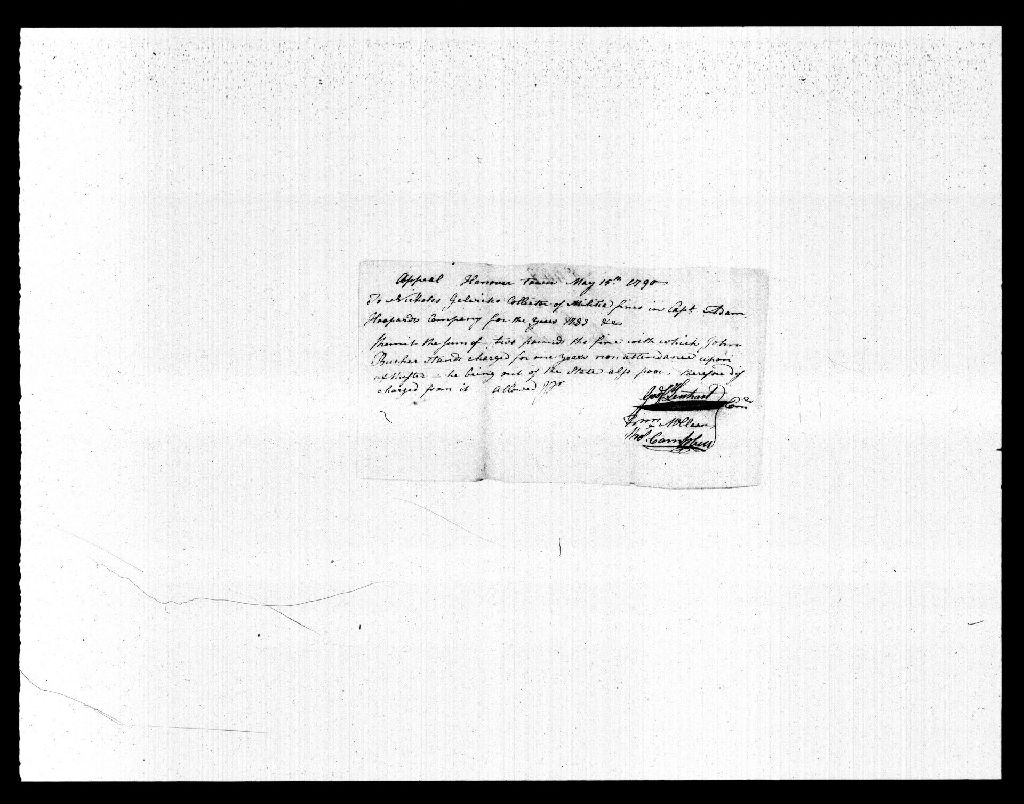 Appeal Hanover Town May 15th 1790
To Nicholas Gelwicks Collector of Militia fines in Capt Adam
Company for the Years 1783 &c
the sum of two pounds the fine with which John
Bucher stands charged for one years non attendance upon
he being out of the State also poor, therefore dis
charged from it allowed
Lenhart
Com
McClean
Campbell